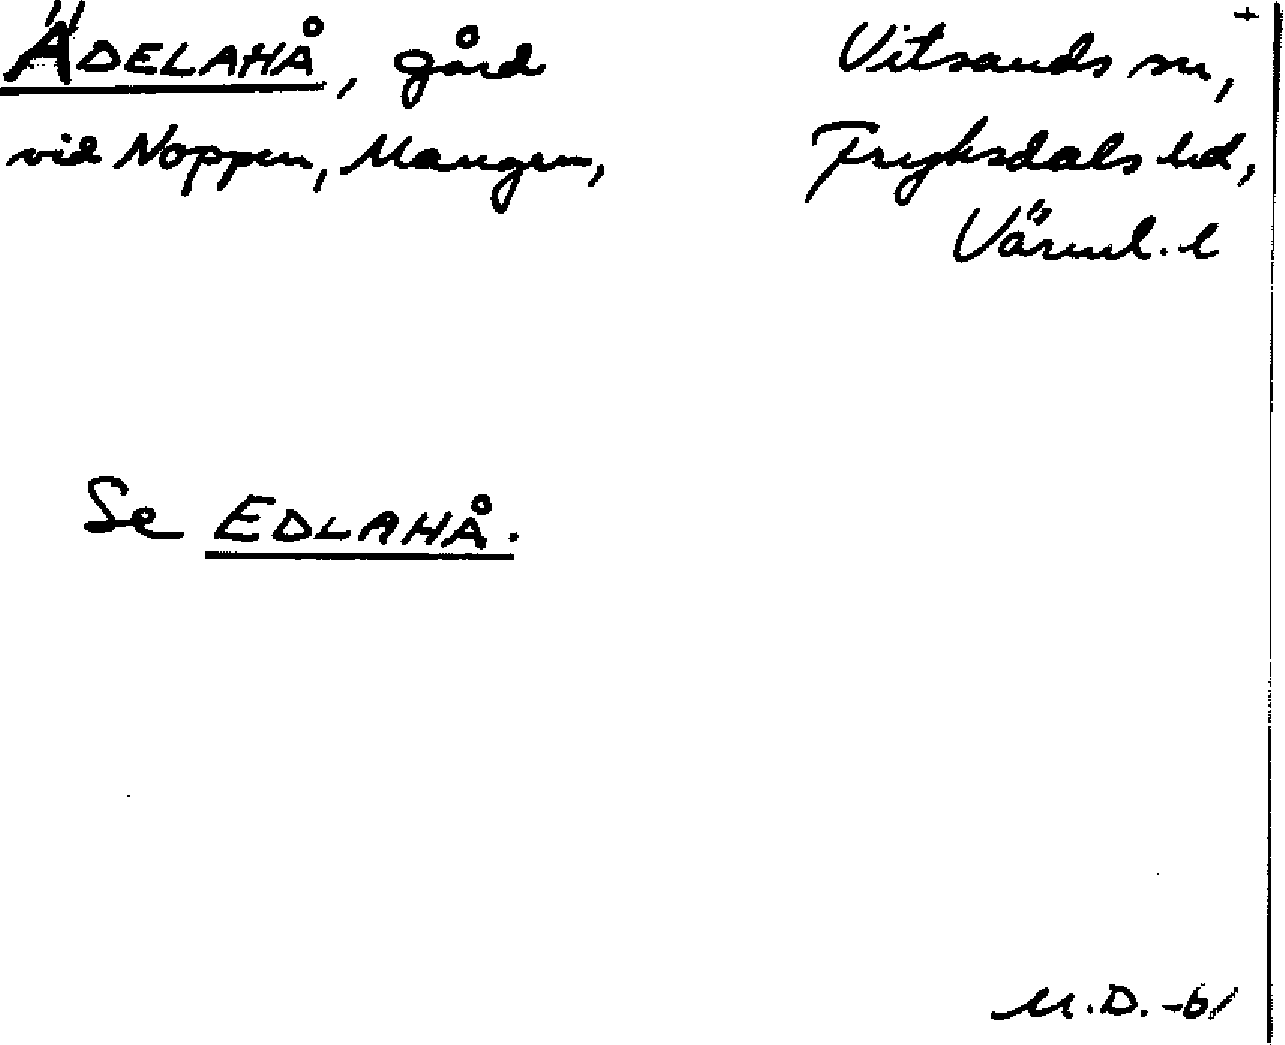 ÄDELAHÅ, gård
vid Noppen, Mangen,
Vitsands sn,
Fryksdals hd,
Värml. l
Se EDLAHÅ.
M.D. -61